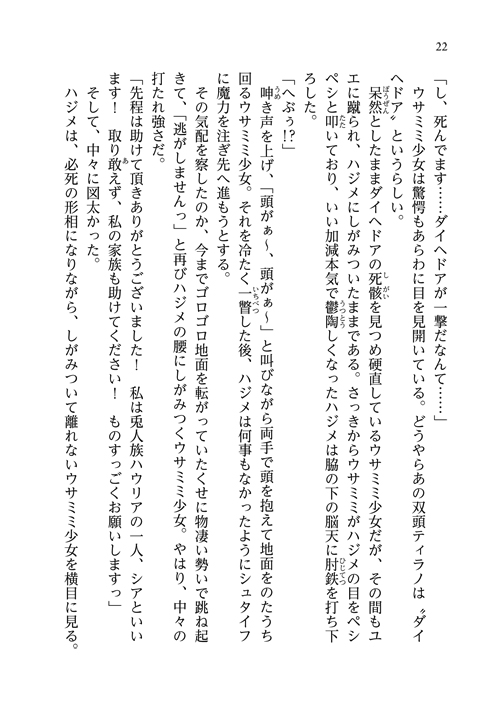 22
「し、死んでます……ダイヘドアが一撃だなんて……」
ウサミミ少女は驚愕もあらわに目を見開いている。どうやらあの双頭ティラノは〝ダイ
ヘドア〟というらしい。
呆然としたままダイヘドアの死骸を見つめ硬直しているウサミミ少女だが、その間もユ
エに蹴られ、ハジメにしがみついたままである。さっきからウサミミがハジメの目をペシ
ペシと叩いており、いい加減本気で鬱陶しくなったハジメは脇の下の脳天に肘鉄を打ち下
ろした。
「へぶぅ!?」
呻き声を上げ、「頭がぁ〜、頭がぁ〜」と叫びながら両手で頭を抱えて地面をのたうち
回るウサミミ少女。それを冷たく一瞥した後、ハジメは何事もなかったようにシュタイフ
に魔力を注ぎ先へ進もうとする。
その気配を察したのか、今までゴロゴロ地面を転がっていたくせに物凄い勢いで跳ね起
きて、「逃がしませんっ」と再びハジメの腰にしがみつくウサミミ少女。やはり、中々の
打たれ強さだ。
「先程は助けて頂きありがとうございました！　私は兎人族ハウリアの一人、シアといい
ます！　取り敢えず、私の家族も助けてください！　ものすっごくお願いしますっ」
そして、中々に図太かった。
ハジメは、必死の形相になりながら、しがみついて離れないウサミミ少女を横目に見る。